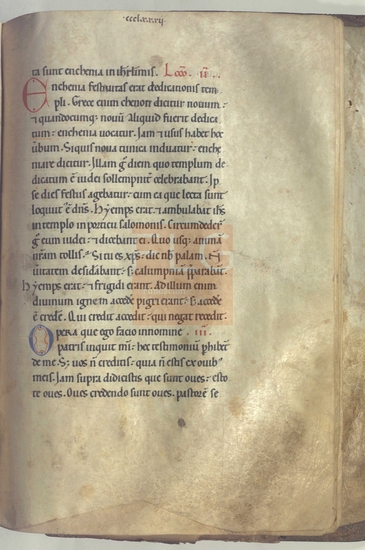 ·ccclxxxij·
ta sunt enchenia in ihrlimis. Lcō. ii.
Enchenia festiuitas erat dedicationis tem
pli. Grece enim chenon dicitur nouum:
⁊ quandocumq; nouū aliquid fuerit dedica
tum: enchenia uocatur. Jam ⁊ usus habet hoc
uerbum. Siquis noua tunica induatur: enche
niare dicitur. Illam g̅ diem quo templum de
dicatum ē iudei sollempnit̄ celebrabant. Ip
se dies festus agebatur: cum ea que lecta sunt
loquut̄ ē dn̄s. Hyemps erat: ⁊ ambulabat ih̄s
in templo in porticu salomonis. Circumdeder̄
g̅ eum iudei: ⁊ dicebant ei. Quo usq; animā
nr̄am tollis: Si tu es xp̄s: dic nb̄ palam.
ueritatem desidabant: s; calumpniā p̄parabāt.
Hyemps erat: ⁊ frigidi erant. Ad illum enim
diuinum ignem accedē pigri erant: s; accedē
ē credē. Qui credit accedit: qui negat recedit.
Opera que ego facio in nomine . iii.
patris inquit mī: hec testimoniū phibēt
de me. S; uos n̄ creditis: quia n̄ estis ex ouib;
meis. Jam supra didicistis que sunt oues: esto
te oues. Oues credendo sunt oues. pastorē se